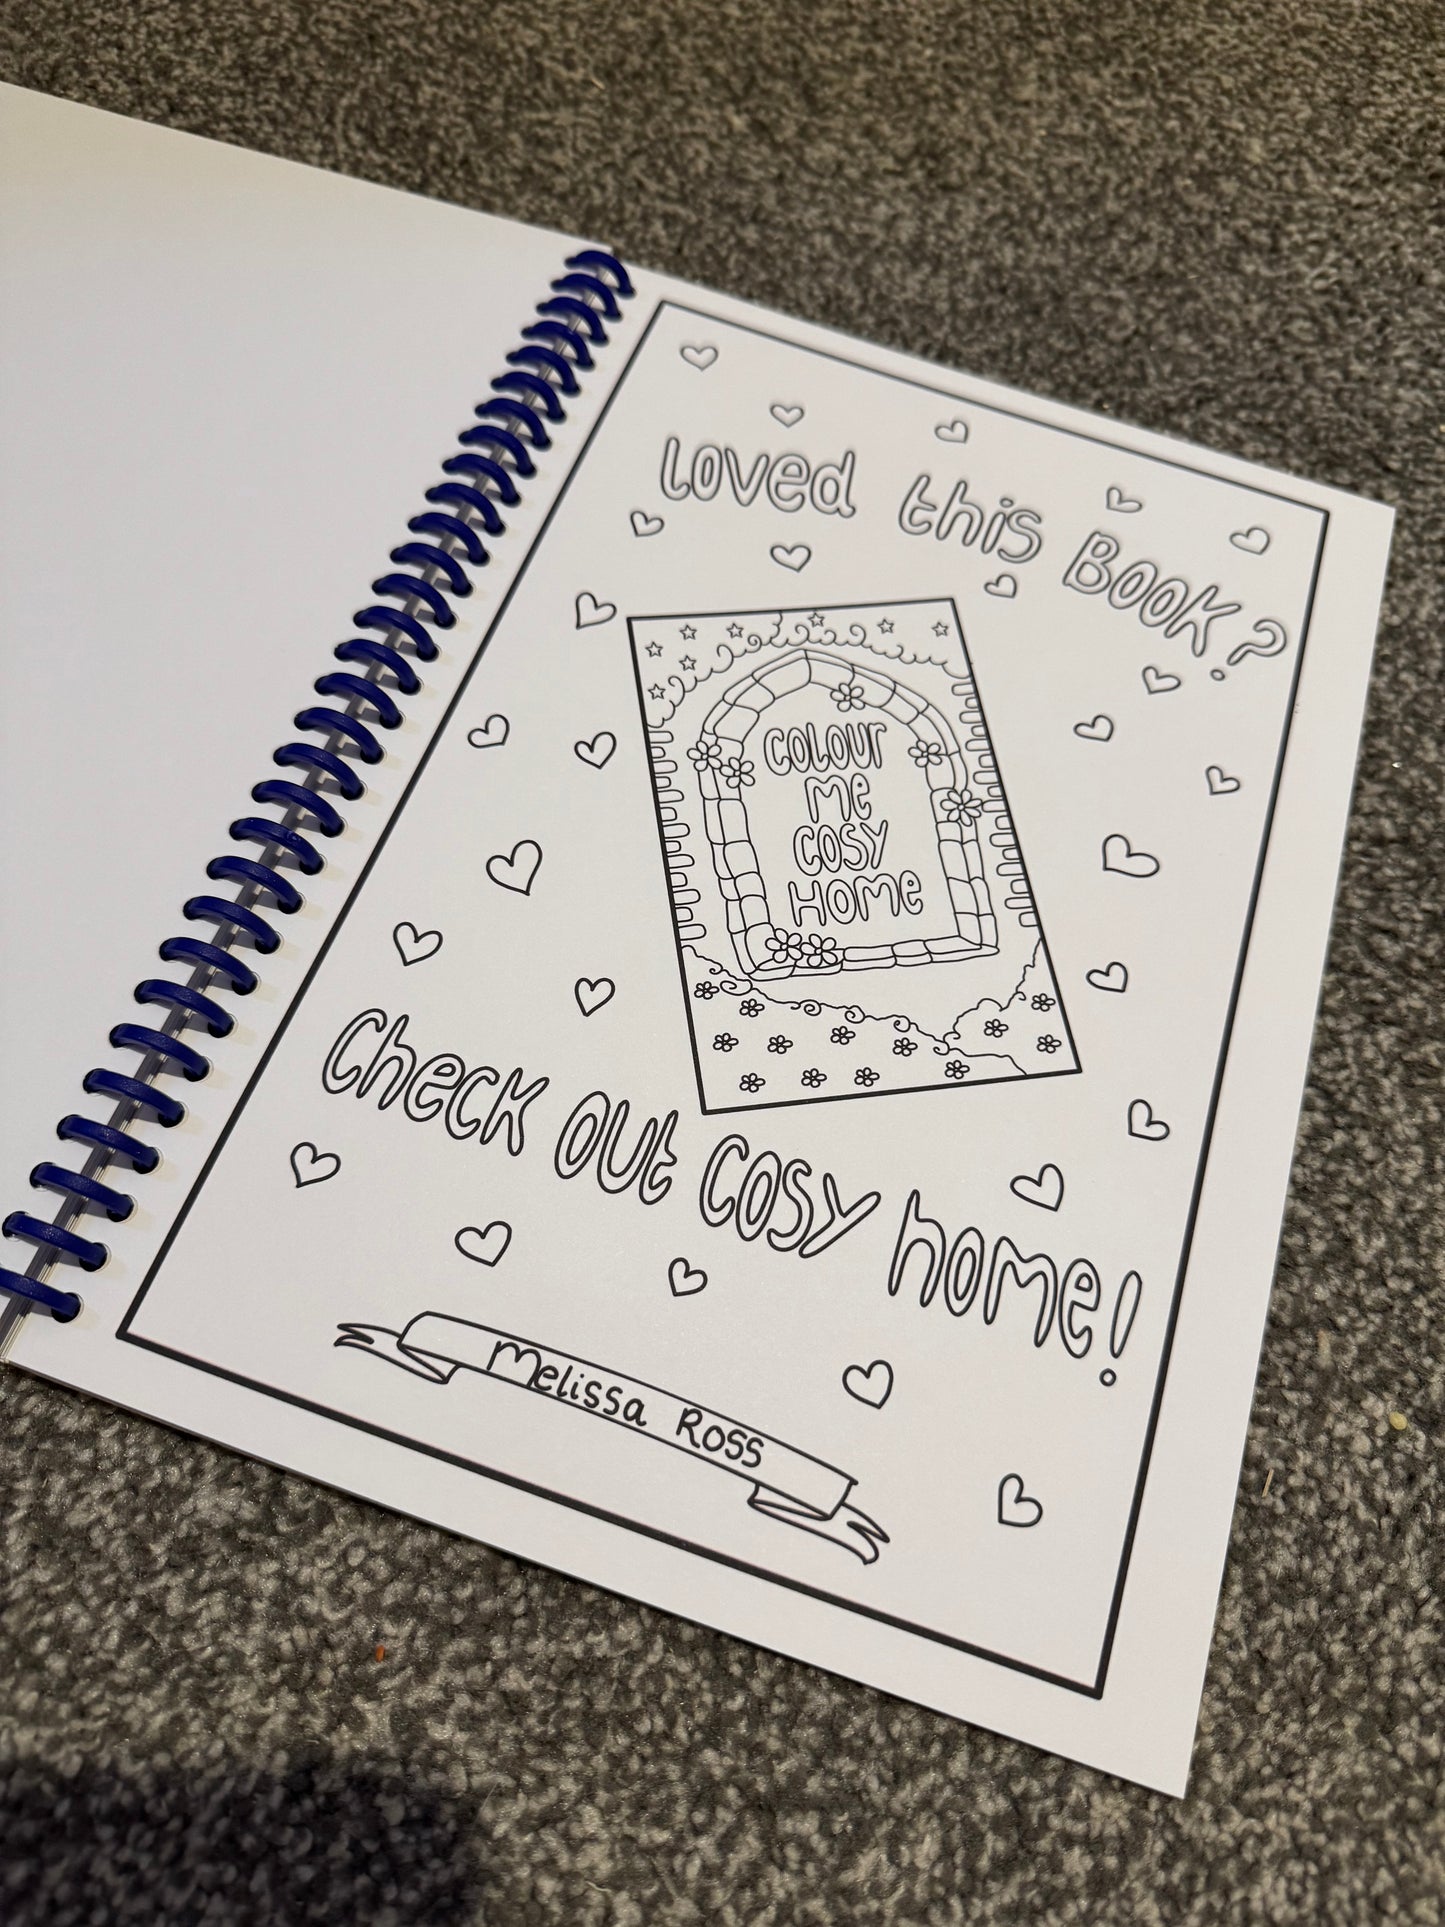 Loved this Book?
COLOUR
me
COSY
HOME
Check out Cosy home!
Melissa Ross